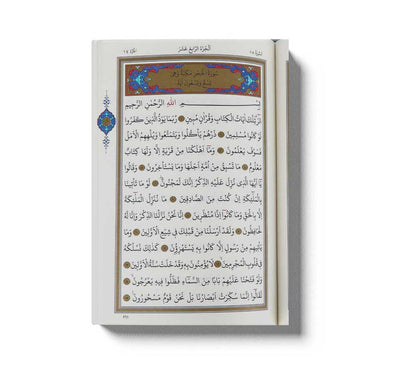 سورة ١٥ الجزء الرابع عشر
سُورَةُ الْحِجْرِ مَكِّيَّةٌ وَهِيَ
تِسْعٌ وَتِسْعُونَ آيَةً
بِسْمِ اللّٰهِ الرَّحْمٰنِ الرَّحِيمِ
الٓرٰ تِلْكَ اٰيَاتُ الْكِتَابِ وَقُرْاٰنٍ مُبِينٍ ۝ رُبَمَا يَوَدُّ الَّذِينَ كَفَرُوا
لَوْ كَانُوا مُسْلِمِينَ ۝ ذَرْهُمْ يَأْكُلُوا وَيَتَمَتَّعُوا وَيُلْهِهِمُ الْاَمَلُ
فَسَوْفَ يَعْلَمُونَ ۝ وَمَا اَهْلَكْنَا مِنْ قَرْيَةٍ اِلَّا وَلَهَا كِتَابٌ
مَعْلُومٌ ۝ مَا تَسْبِقُ مِنْ اُمَّةٍ اَجَلَهَا وَمَا يَسْتَأْخِرُونَ ۝ وَقَالُوا
يَا اَيُّهَا الَّذِي نُزِّلَ عَلَيْهِ الذِّكْرُ اِنَّكَ لَمَجْنُونٌ ۝ لَوْ مَا تَأْتِينَا
بِالْمَلٰئِكَةِ اِنْ كُنْتَ مِنَ الصَّادِقِينَ ۝ مَا نُنَزِّلُ الْمَلٰئِكَةَ
اِلَّا بِالْحَقِّ وَمَا كَانُوا اِذًا مُنْظَرِينَ ۝ اِنَّا نَحْنُ نَزَّلْنَا الذِّكْرَ وَاِنَّا لَهُ
لَحَافِظُونَ ۝ وَلَقَدْ اَرْسَلْنَا مِنْ قَبْلِكَ فِي شِيَعِ الْاَوَّلِينَ ۝ وَمَا
يَأْتِيهِمْ مِنْ رَسُولٍ اِلَّا كَانُوا بِهِ يَسْتَهْزِؤُنَ ۝ كَذٰلِكَ نَسْلُكُهُ
فِي قُلُوبِ الْمُجْرِمِينَ ۝ لَا يُؤْمِنُونَ بِهِ وَقَدْ خَلَتْ سُنَّةُ الْاَوَّلِينَ ۝
وَلَوْ فَتَحْنَا عَلَيْهِمْ بَابًا مِنَ السَّمَاءِ فَظَلُّوا فِيهِ يَعْرُجُونَ ۝
لَقَالُوا اِنَّمَا سُكِّرَتْ اَبْصَارُنَا بَلْ نَحْنُ قَوْمٌ مَسْحُورُونَ ۝